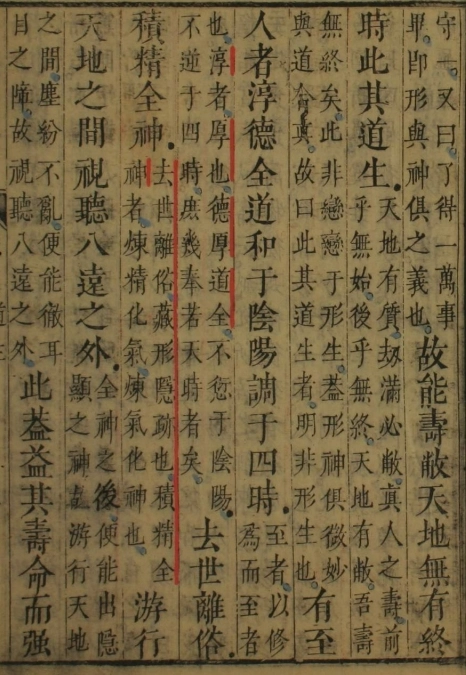 守一。又曰了得一萬事
畢。即形與神俱之義也。故能壽敝天地無有終
時此其道生。天地有質劫滿必敝真人之壽前
乎無始後乎無終天地有敝吾壽
無終矣此非戀戀于形生蓋形神俱微妙
與道合真故曰此其道生者明非形生也有至
人者淳德全道和于陰陽調于四時。至者以修
為而至者
也淳者厚也德厚道全不愆于陰陽
不逆于四時庶幾奉若天時者矣去世離俗。
積精全神。去世離俗藏形隱跡也積精全
神者煉精化氣煉氣化神也游行
天地之間視聽八遠之外。全神之後便能出隱
顯之神游行天地
之間塵紛不亂便能徹耳
目之障故視聽八遠之外此蓋益其壽命而强